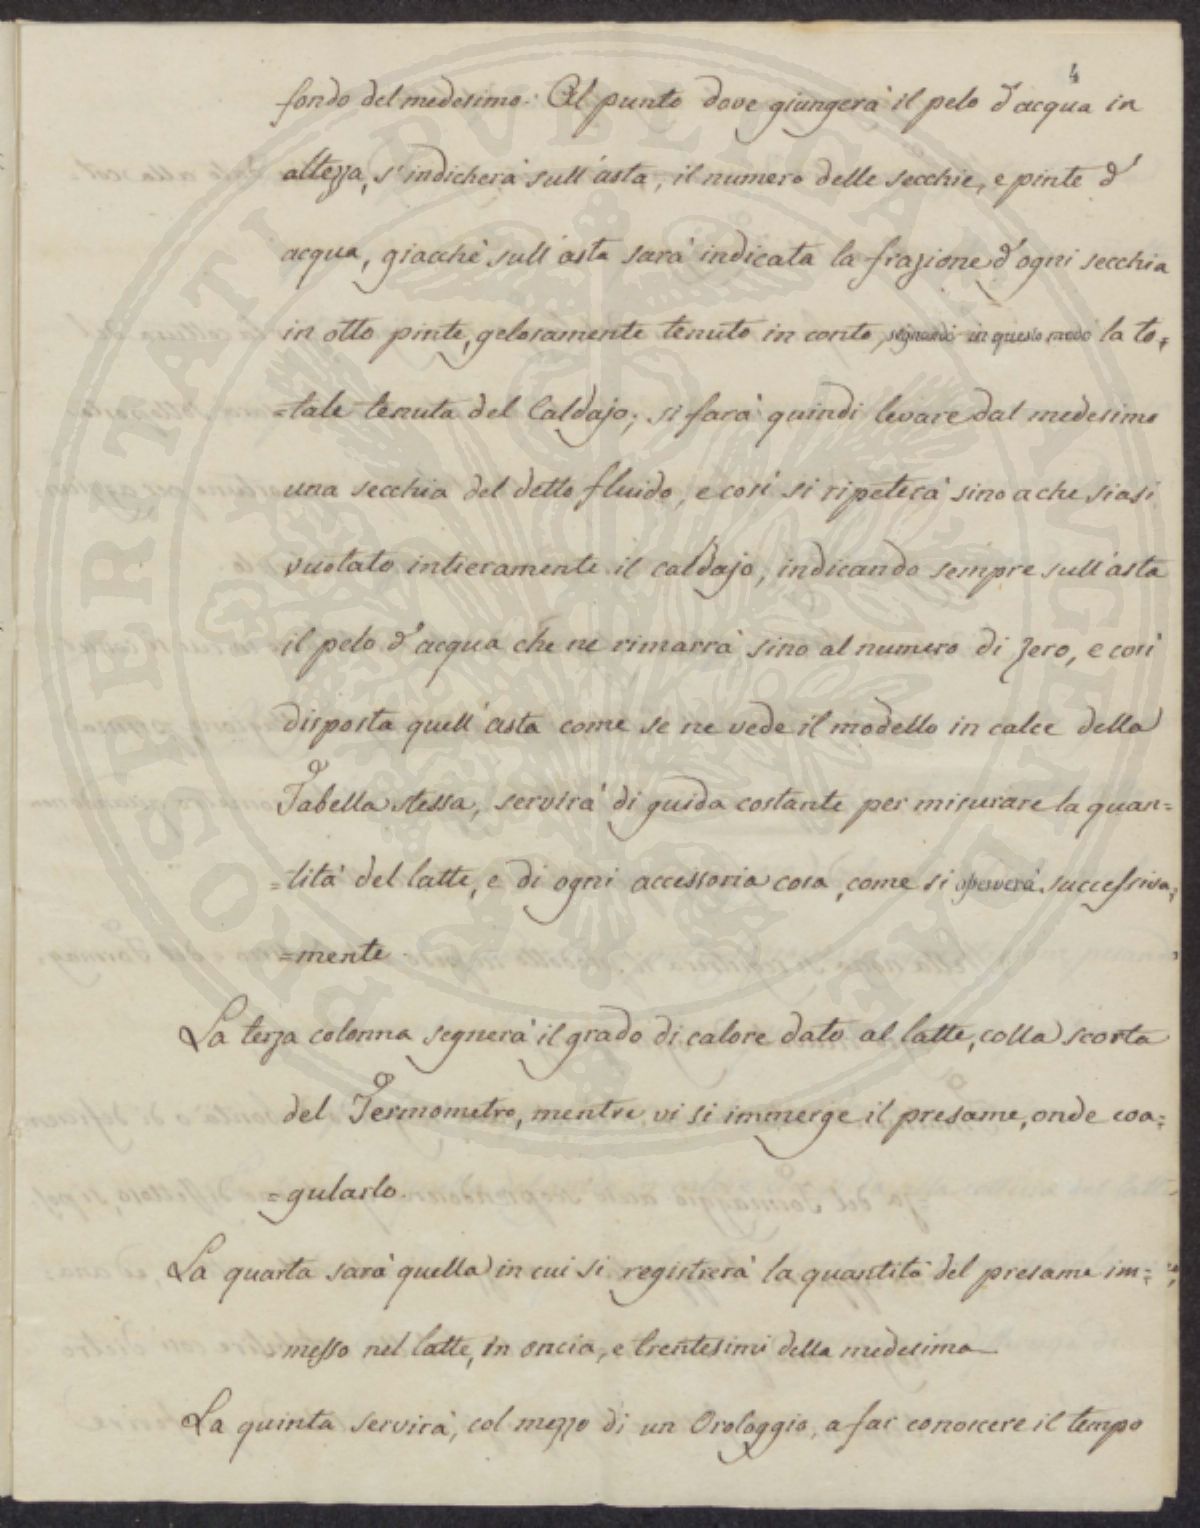 4
fondo del medesimo. Al punto dove giungerà il pelo d'acqua in
altezza, s'indicherà sull'asta, il numero delle secchie, e pinte d'
acqua, giacchè sull'asta sarà indicata la frazione d'ogni secchia
in otto pinte, gelosamente tenuto in conto, segnando in questo modo la to=
=tale tenuta del Caldajo; si farà quindi levare dal medesimo
una secchia del detto fluido, e così si ripeterà sino a che siasi
vuotato intieramente il caldajo, indicando sempre sull'asta
il pelo d'acqua che ne rimarrà sino al numero di zero, e così
disposta quell'asta come se ne vede il modello in calce della
Tabella stessa, servirà di guida costante per misurare la quan=
=tità del latte, e di ogni accessoria cosa, come si osserverà successiva=
=mente.
La terza colonna segnerà il grado di calore dato al latte, colla scorta
del Termometro, mentre vi si immerge il presame, onde coa=
=gularlo.
La quarta sarà quella in cui si registrerà la quantità del presame im=
=messo nel latte, in oncia, e trentesimi della medesima
La quinta servirà, col mezzo di un Orologgio, a far conoscere il tempo
PROSPERITATI PVBLICAE AVGENDAE